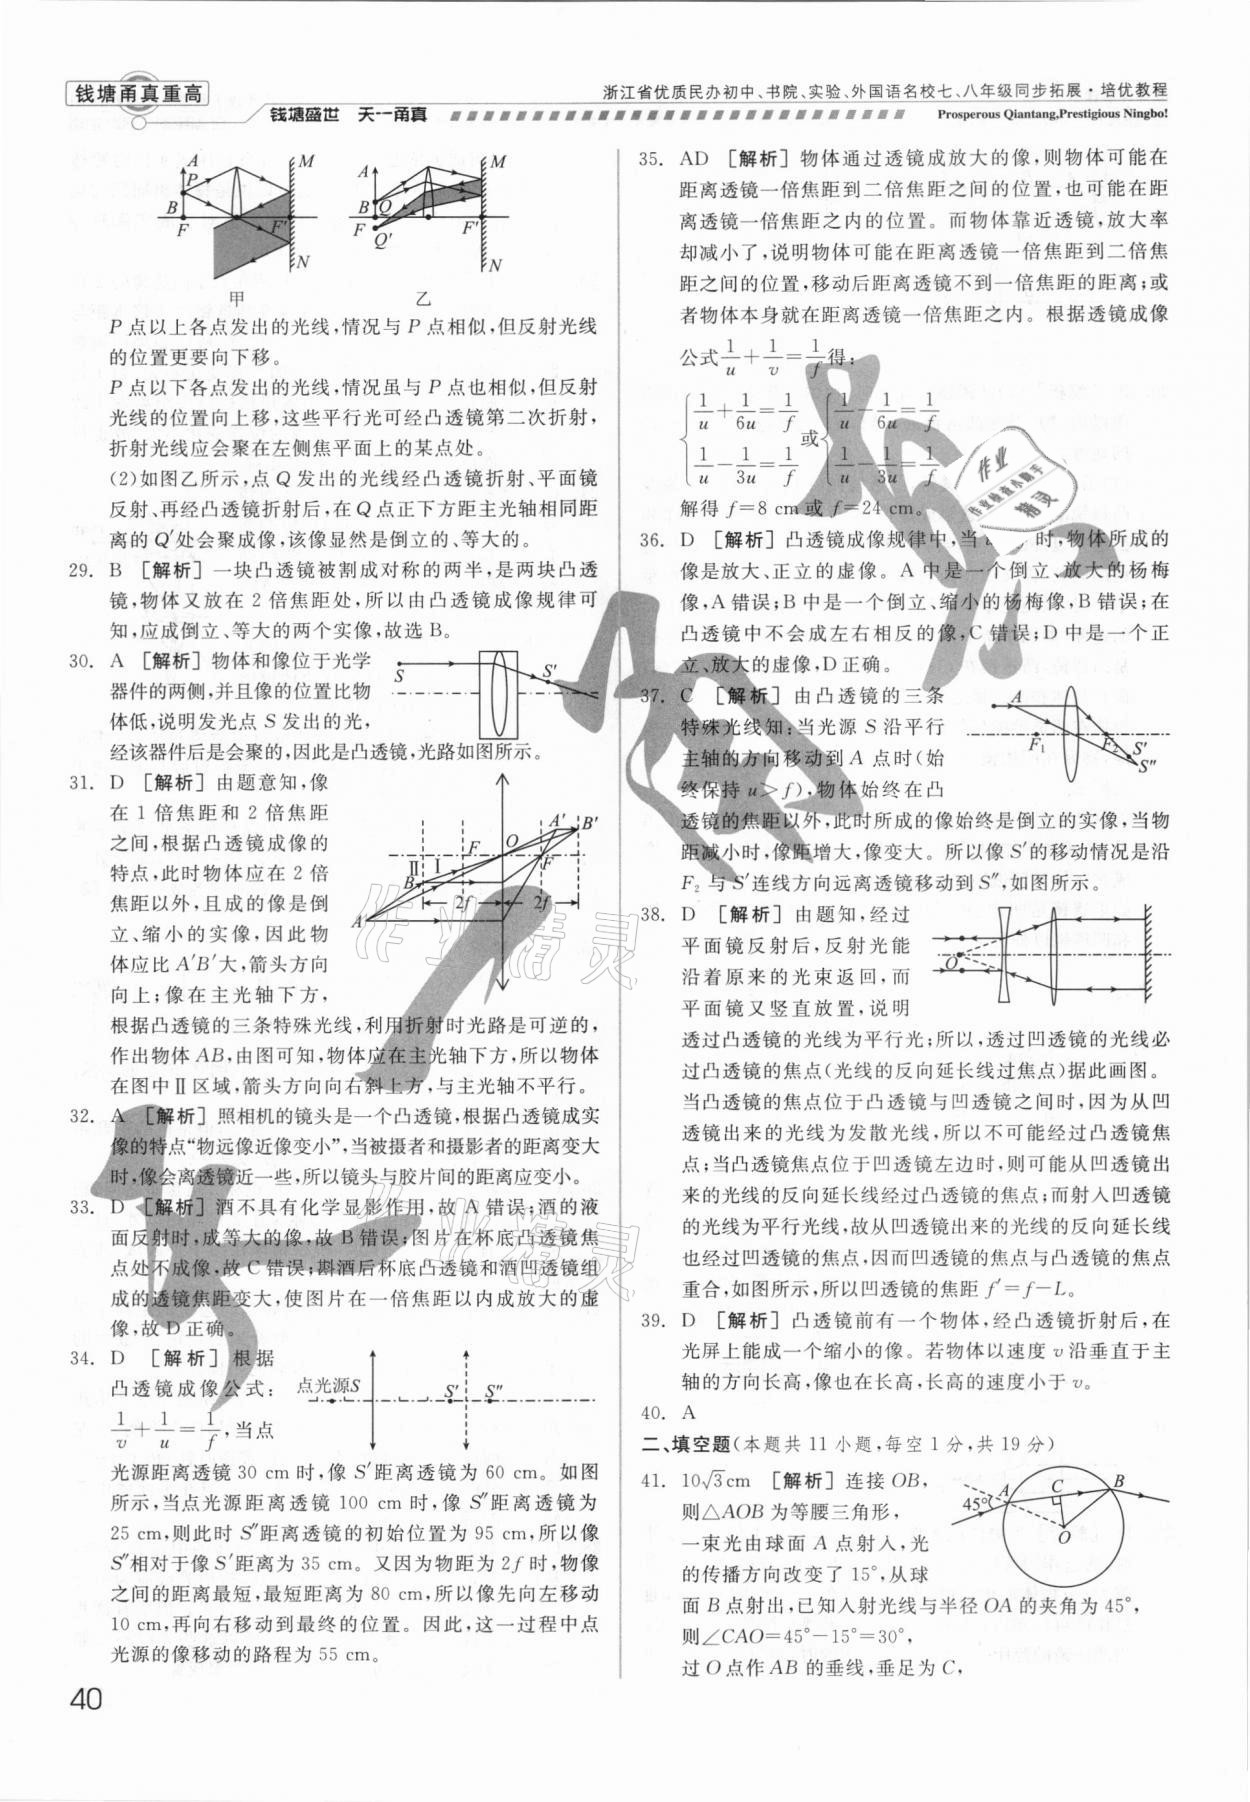 钱塘甬真重高
钱塘盛世 天一甬真
浙江省优质民办初中、书院、实验、外国语名校七、八年级同步拓展·培优教程
Prosperous Qiantang,Prestigious Ningbo!
A P B F M F' N
甲
A B Q F Q' M F' N
乙
P 点以上各点发出的光线,情况与 P 点相似,但反射光线
的位置更要向下移。
P 点以下各点发出的光线,情况虽与 P 点也相似,但反射
光线的位置向上移,这些平行光可经凸透镜第二次折射,
折射光线应会聚在左侧焦平面上的某点处。
(2)如图乙所示,点 Q 发出的光线经凸透镜折射、平面镜
反射、再经凸透镜折射后,在 Q 点正下方距主光轴相同距
离的 Q'处会聚成像,该像显然是倒立的、等大的。
29. B [解析]一块凸透镜被割成对称的两半,是两块凸透
镜,物体又放在 2 倍焦距处,所以由凸透镜成像规律可
知,应成倒立、等大的两个实像,故选 B。
30. A [解析]物体和像位于光学
器件的两侧,并且像的位置比物
体低,说明发光点 S 发出的光,
经该器件后是会聚的,因此是凸透镜,光路如图所示。
S S'
31. D [解析]由题意知,像
在 1 倍焦距和 2 倍焦距
之间,根据凸透镜成像的
特点,此时物体应在 2 倍
焦距以外,且成的像是倒
立、缩小的实像,因此物
体应比 A'B'大,箭头方向
向上;像在主光轴下方,
根据凸透镜的三条特殊光线,利用折射时光路是可逆的,
作出物体 AB,由图可知,物体应在主光轴下方,所以物体
在图中Ⅱ区域,箭头方向向右斜上方,与主光轴不平行。
A' B' F O Ⅱ Ⅰ F B A 2f 2f
32. A [解析]照相机的镜头是一个凸透镜,根据凸透镜成实
像的特点“物远像近像变小”,当被摄者和摄影者的距离变大
时,像会离透镜近一些,所以镜头与胶片间的距离应变小。
33. D [解析]酒不具有化学显影作用,故 A 错误;酒的液
面反射时,成等大的像,故 B 错误;图片在杯底凸透镜焦
点处不成像,故 C 错误;斟酒后杯底凸透镜和酒凹透镜组
成的透镜焦距变大,使图片在一倍焦距以内成放大的虚
像,故 D 正确。
34. D [解析]根据
凸透镜成像公式:
1/v+1/u=1/f,当点
点光源S S' S''
光源距离透镜 30 cm 时,像 S'距离透镜为 60 cm。如图
所示,当点光源距离透镜 100 cm 时,像 S''距离透镜为
25 cm,则此时 S''距离透镜的初始位置为 95 cm,所以像
S''相对于像 S'距离为 35 cm。又因为物距为 2f 时,物像
之间的距离最短,最短距离为 80 cm,所以像先向左移动
10 cm,再向右移动到最终的位置。因此,这一过程中点
光源的像移动的路程为 55 cm。
40
35. AD [解析]物体通过透镜成放大的像,则物体可能在
距离透镜一倍焦距到二倍焦距之间的位置,也可能在距
离透镜一倍焦距之内的位置。而物体靠近透镜,放大率
却减小了,说明物体可能在距离透镜一倍焦距到二倍焦
距之间的位置,移动后距离透镜不到一倍焦距的距离;或
者物体本身就在距离透镜一倍焦距之内。根据透镜成像
公式1/u+1/v=1/f得:
1/u+1/6u=1/f 或 1/u-1/6u=1/f
1/u-1/3u=1/f 1/u-1/3u=1/f
解得 f=8 cm 或 f=24 cm。
36. D [解析]凸透镜成像规律中,当 时,物体所成的
像是放大、正立的虚像。A 中是一个倒立、放大的杨梅
像,A 错误;B 中是一个倒立、缩小的杨梅像,B 错误;在
凸透镜中不会成左右相反的像,C 错误;D 中是一个正
立、放大的虚像,D 正确。
37. C [解析]由凸透镜的三条
特殊光线知:当光源 S 沿平行
主轴的方向移动到 A 点时(始
终保持 u>f),物体始终在凸
透镜的焦距以外,此时所成的像始终是倒立的实像,当物
距减小时,像距增大,像变大。所以像 S'的移动情况是沿
F2 与 S'连线方向远离透镜移动到 S'',如图所示。
A F1 F2 S' S''
38. D [解析]由题知,经过
平面镜反射后,反射光能
沿着原来的光束返回,而
平面镜又竖直放置,说明
透过凸透镜的光线为平行光;所以,透过凹透镜的光线必
过凸透镜的焦点(光线的反向延长线过焦点)据此画图。
当凸透镜的焦点位于凸透镜与凹透镜之间时,因为从凹
透镜出来的光线为发散光线,所以不可能经过凸透镜焦
点;当凸透镜焦点位于凹透镜左边时,则可能从凹透镜出
来的光线的反向延长线经过凸透镜的焦点;而射入凹透镜
的光线为平行光线,故从凹透镜出来的光线的反向延长线
也经过凹透镜的焦点,因而凹透镜的焦点与凸透镜的焦点
重合,如图所示,所以凹透镜的焦距 f'=f-L。
O
39. D [解析]凸透镜前有一个物体,经凸透镜折射后,在
光屏上能成一个缩小的像。若物体以速度 v 沿垂直于主
轴的方向长高,像也在长高,长高的速度小于 v。
40. A
二、填空题(本题共 11 小题,每空 1 分,共 19 分)
41. 10√3cm [解析]连接 OB,
则△AOB 为等腰三角形,
一束光由球面 A 点射入,光
的传播方向改变了 15°,从球
面 B 点射出,已知入射光线与半径 OA 的夹角为 45°,
则∠CAO=45°-15°=30°,
过 O 点作 AB 的垂线,垂足为 C,
45° A C B O
作业
作业检查小助手
精灵
作业精灵
作业精灵